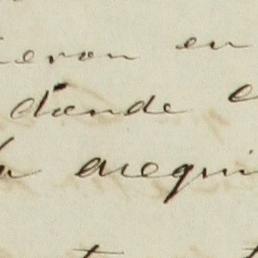 ieron en
donde e
a arequi